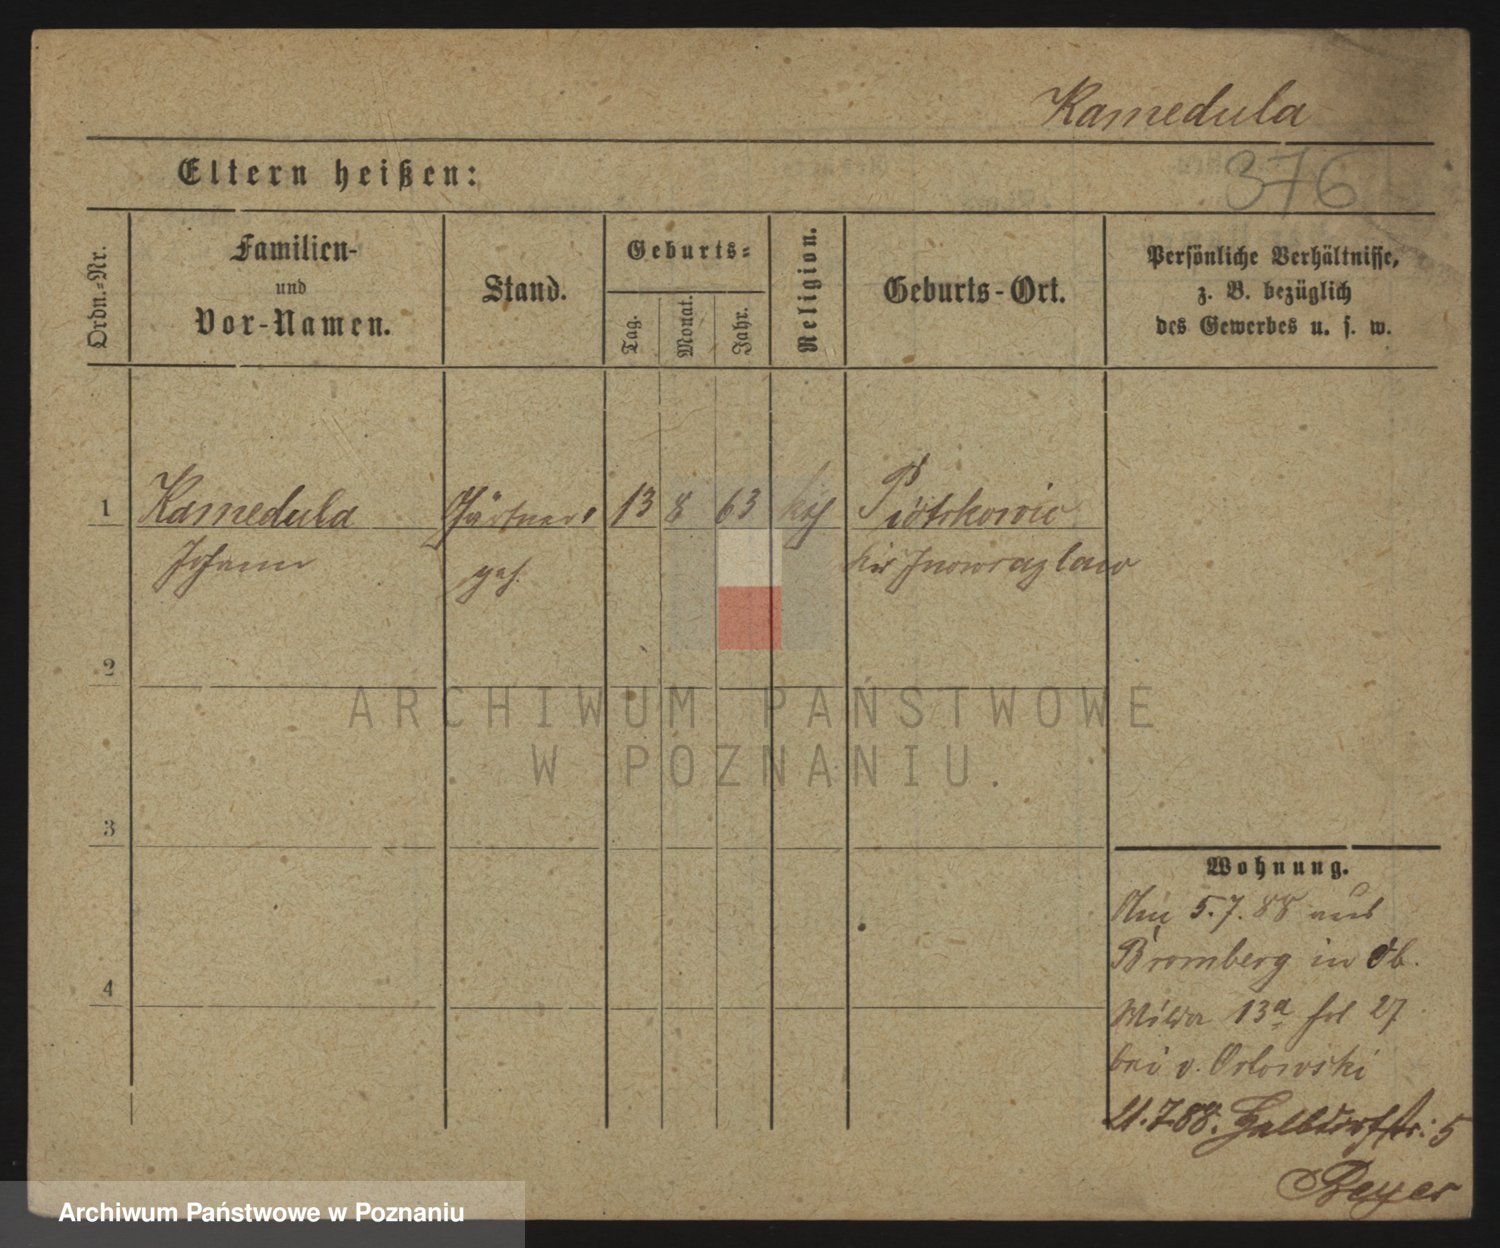 Kamedula
376
Eltern heißen:
Ordn.-Nr.
Familien-
und
Vor-Namen.
Stand.
Geburts-
Tag.
Monat.
Jahr.
Religion.
Geburts-Ort.
Persönliche Verhältnisse,
z. B. bezüglich
des Gewerbes u. s. w.
1 Kamedula Gärtner 13 8 63 kth Piotrkowic
Johann geh. kr Inowrazlaw
2
3
4
Wohnung.
Am 5.7.88 aus
Bromberg in Ob.
Wilda 13a 27
bei v. Orlowski
21.7.88. Halbdorfstr. 5
Beyer
ARCHIWUM PAŃSTWOWE
W POZNANIU.
Archiwum Państwowe w Poznaniu